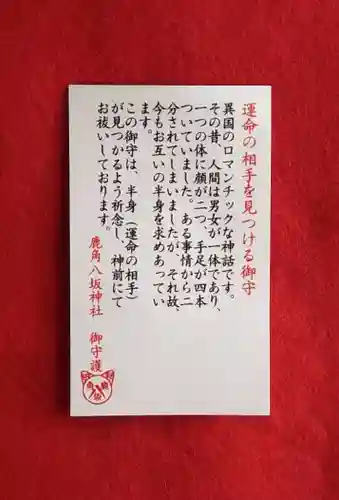 運命の相手を見つける御守
異国のロマンチックな神話です。
その昔、人間は男女が一体であり、
一つの体に顔が二つ、手足が四本
ついていました。ある事情から二
分されてしまいましたが、それ故、
今もお互いの半身を求めあってい
ます。
この御守は、半身（運命の相手）
が見つかるよう祈念し、神前にて
お祓いしております。
鹿角八坂神社　御守護